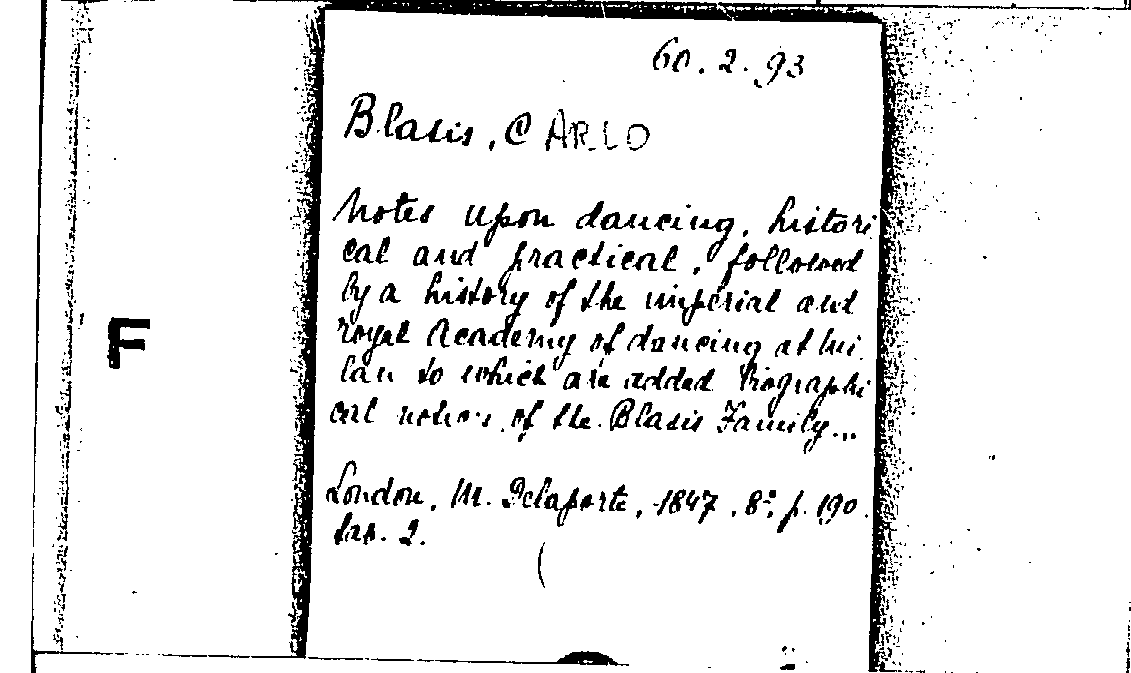 60.2.93
Blasis, CARLO
Notes upon dancing, histori
cal and practical, followed
by a history of the imperial and
royal Academy of dancing at Mi
lan to which are added biographi
cal notices of the Blasis Family...
F
London, M. Delaporte, 1847, 8º, p. 190.
tav. 2.